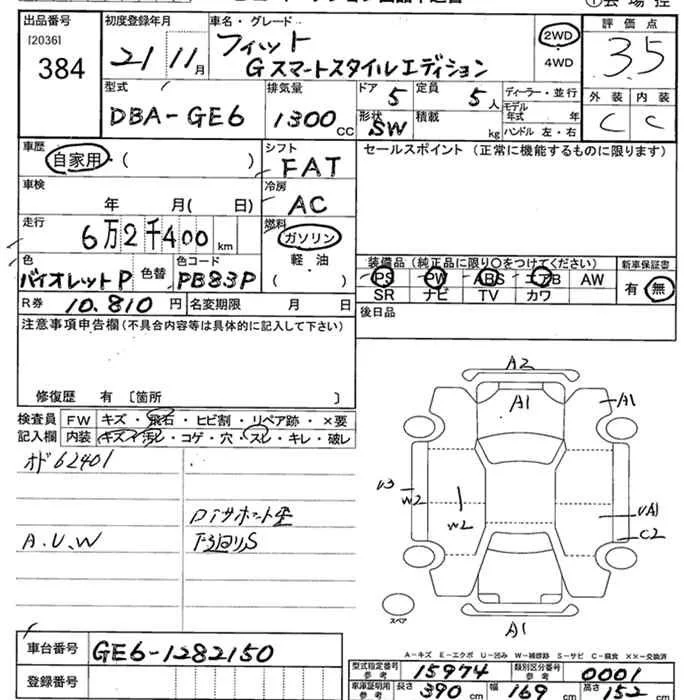 出品番号 初度登録年月 車名・グレード 評価点
[2036] 384 21 11月 フィット 2WD 35
Gスマートスタイルエディション ・ 4WD
型式 排気量 ドア 5 定員 5人 ディーラー・並行 外装 内装
DBA-GE6 1300cc 形状 SW 積載 kg モデル年式 年 C C
ハンドル 左・右
車歴 自家用・( ) シフト FAT セールスポイント (正常に機能するものに限ります)
車検 年 月( 日) 冷房 AC
走行 6万2千400km 燃料 ガソリン
色 バイオレットP 色替 色コード PB83P 軽・油 ( )
装備品(純正品に限り○をつけてください) 新車保証書
PS PW ABS エアB AW 有・無
SR ナビ TV カワ
R券 10.810円 名変期限 月 日 後日品
注意事項申告欄(不具合内容等は具体的に記入して下さい)
修復歴 有 [箇所 ]
検査員記入欄 FW キズ・飛石・ヒビ割・リペア跡・×要
内装 キズ・汚レ・コゲ・穴・スレ・キレ・破レ
オド62401
A.U.W
下廻りS
A2
A1
A1
U3
W2
W2
UA1
C2
A1
スペア
A-キズ E-エクボ U-凹み W-補修跡 S-サビ C-腐食 ××-交換済
車台番号 GE6-1282150
登録番号
型式指定番号 参考 15974 類別区分番号 参考 0001
車庫証明用 参考 長さ 390cm 幅 169cm 高さ 152cm